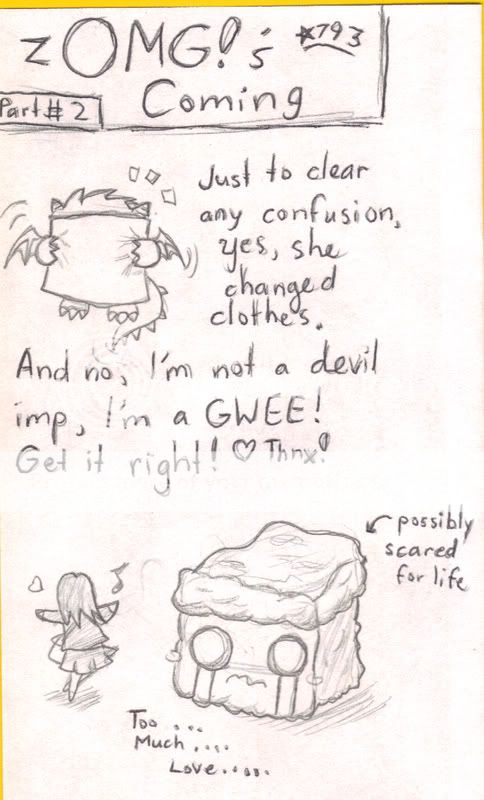 zOMG!'s
*793
Coming
Part # 2
Just to clear
any confusion,
yes, she
changed
clothes.
And no, I'm not a devil
imp, I'm a GWEE!
Get it right! ♡ Thnx!
possibly
scared
for life
Too ...
Much ....
Love.....